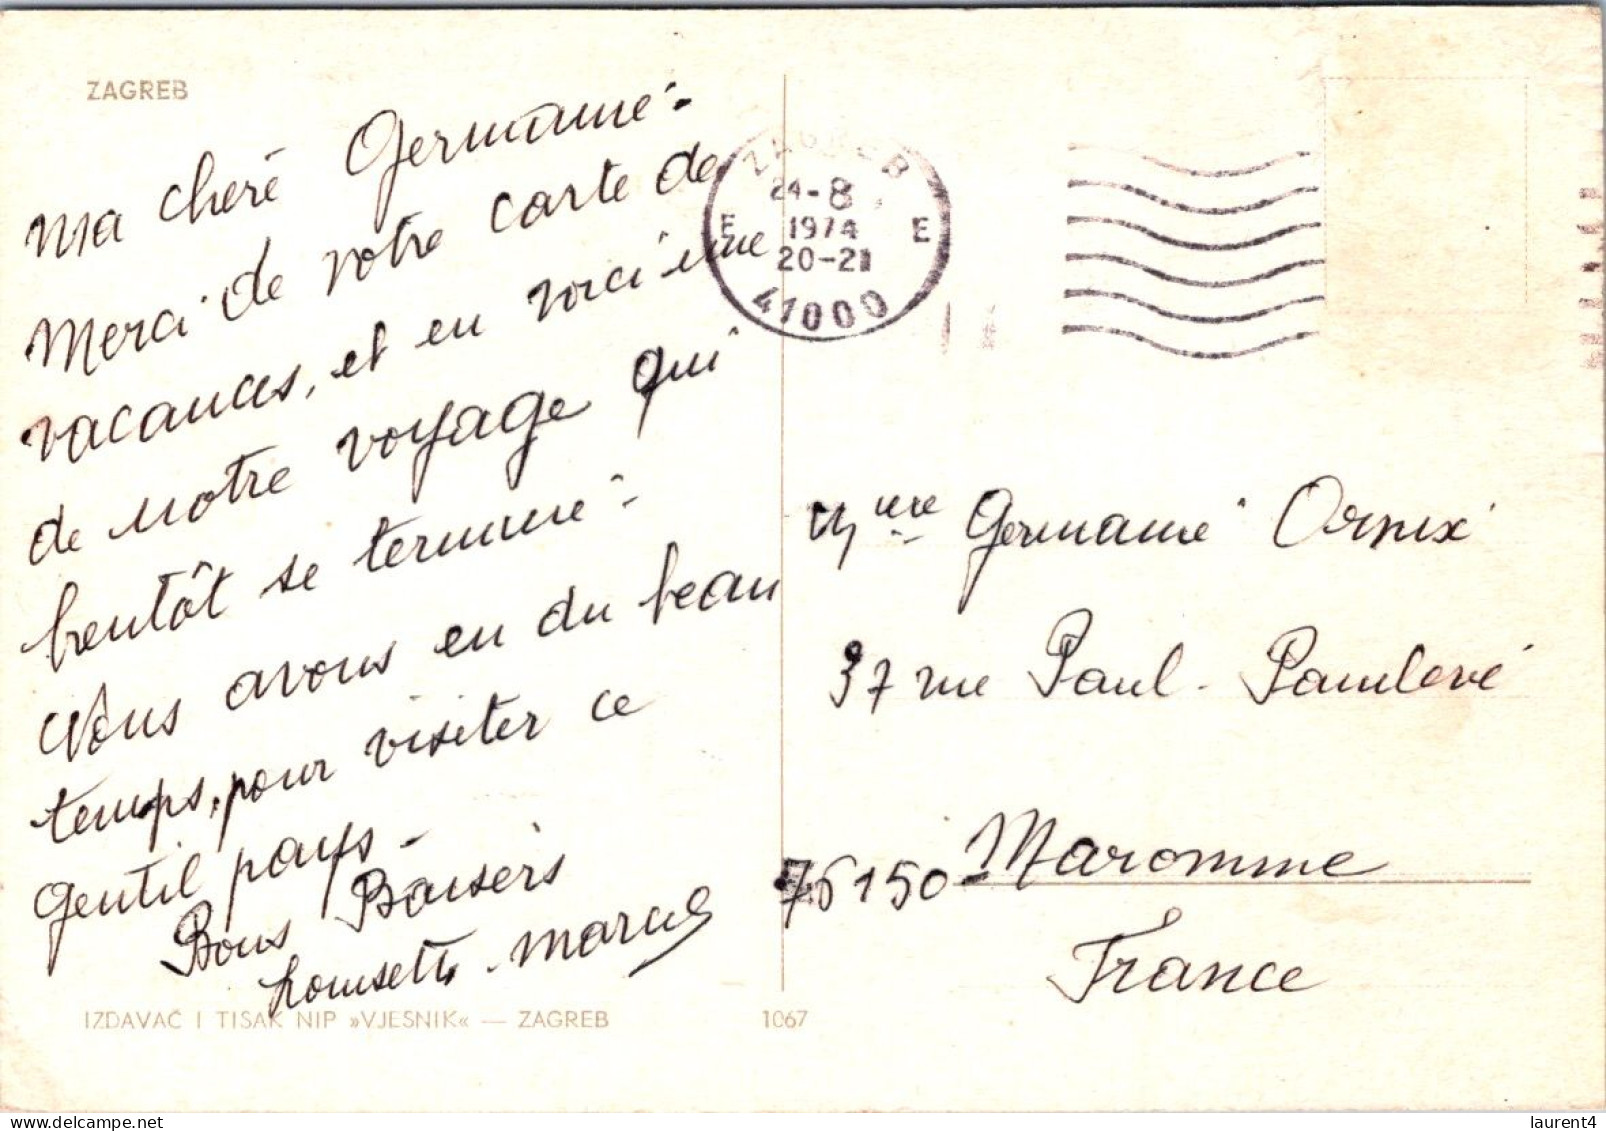 ZAGREB
Ma chère Germaine -
Merci de votre carte de
vacances, et en voici une
de notre voyage qui
bientôt se termine -
Nous avons eu du beau
temps, pour visiter ce
gentil pays -
Bons Baisers
Louisette - Marcel
IZDAVAČ I TISAK NIP »VJESNIK« — ZAGREB
1067
ZAGREB
24-8
1974
20-21
E E
41000
Mme Germaine
37 rue Paul - Painlevé
76150 - Maromme
France
laurent4